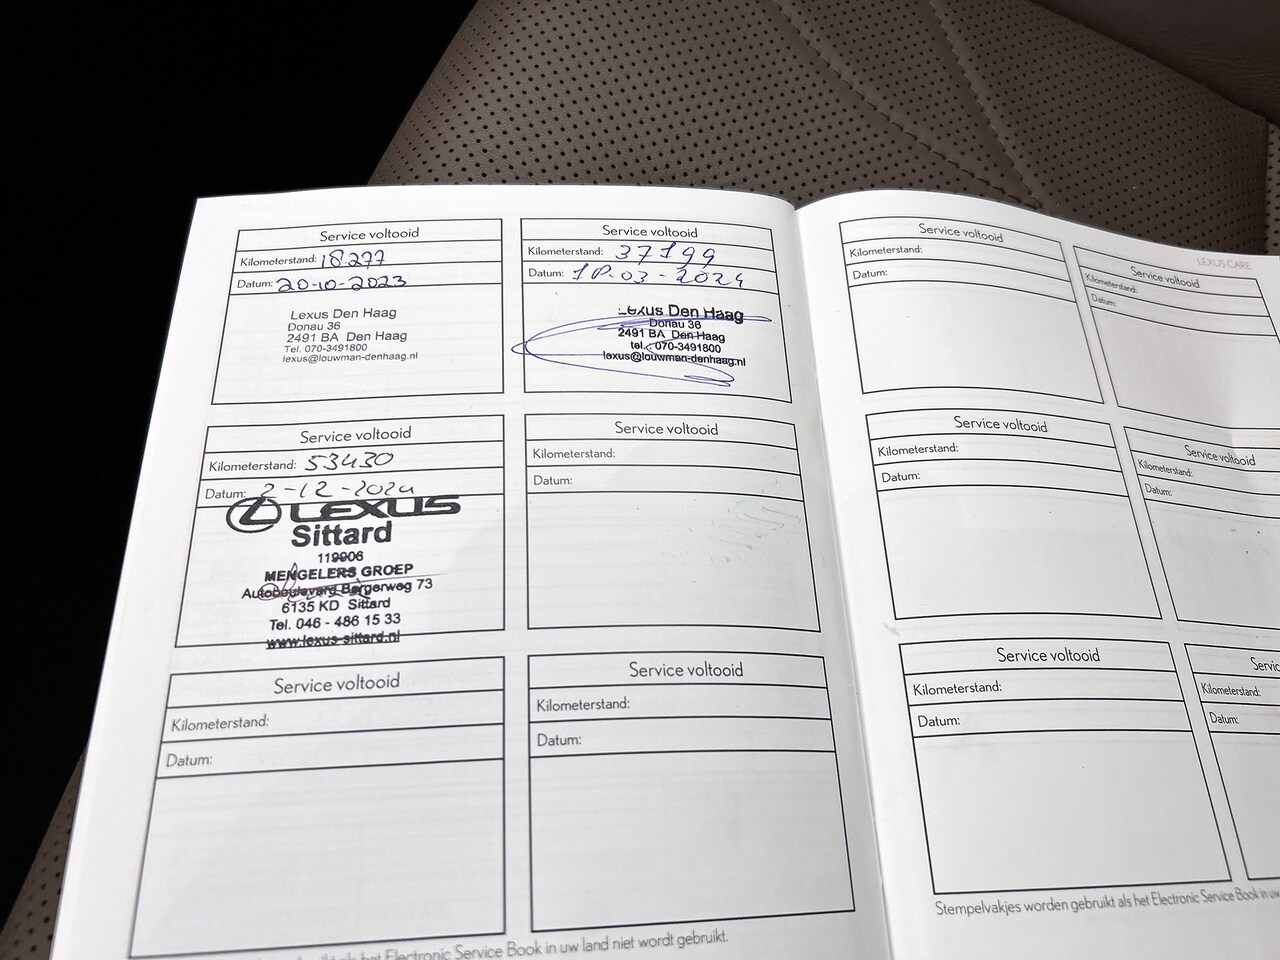 Service voltooid
Kilometerstand: 18.277
Datum: 20-10-2023
Lexus Den Haag
Donau 36
2491 BA Den Haag
Tel. 070-3491800
lexus@louwman-denhaag.nl
Service voltooid
Kilometerstand: 37199
Datum: -03-2024
Lexus Den Haag
Donau 36
2491 BA Den Haag
tel.: 070-3491800
lexus@louwman-denhaag.nl
Service voltooid
Kilometerstand: 53430
Datum: 2-12-2024
LEXUS
Sittard
119906
MENGELERS GROEP
Autoboulevard Bergerweg 73
6135 KD Sittard
Tel. 046 - 486 15 33
www.lexus-sittard.nl
Service voltooid
Kilometerstand:
Datum:
Service voltooid
Kilometerstand:
Datum:
Service voltooid
Kilometerstand:
Datum:
het Electronic Service Book in uw land niet wordt gebruikt.
LEXUS CARE
Service voltooid
Kilometerstand:
Datum:
Service voltooid
Kilometerstand:
Datum:
Service voltooid
Kilometerstand:
Datum:
Service voltooid
Kilometerstand:
Datum:
Service voltooid
Kilometerstand:
Datum:
Servic
Kilometerstand:
Datum:
Stempelvakjes worden gebruikt als het Electronic Service Book in uw